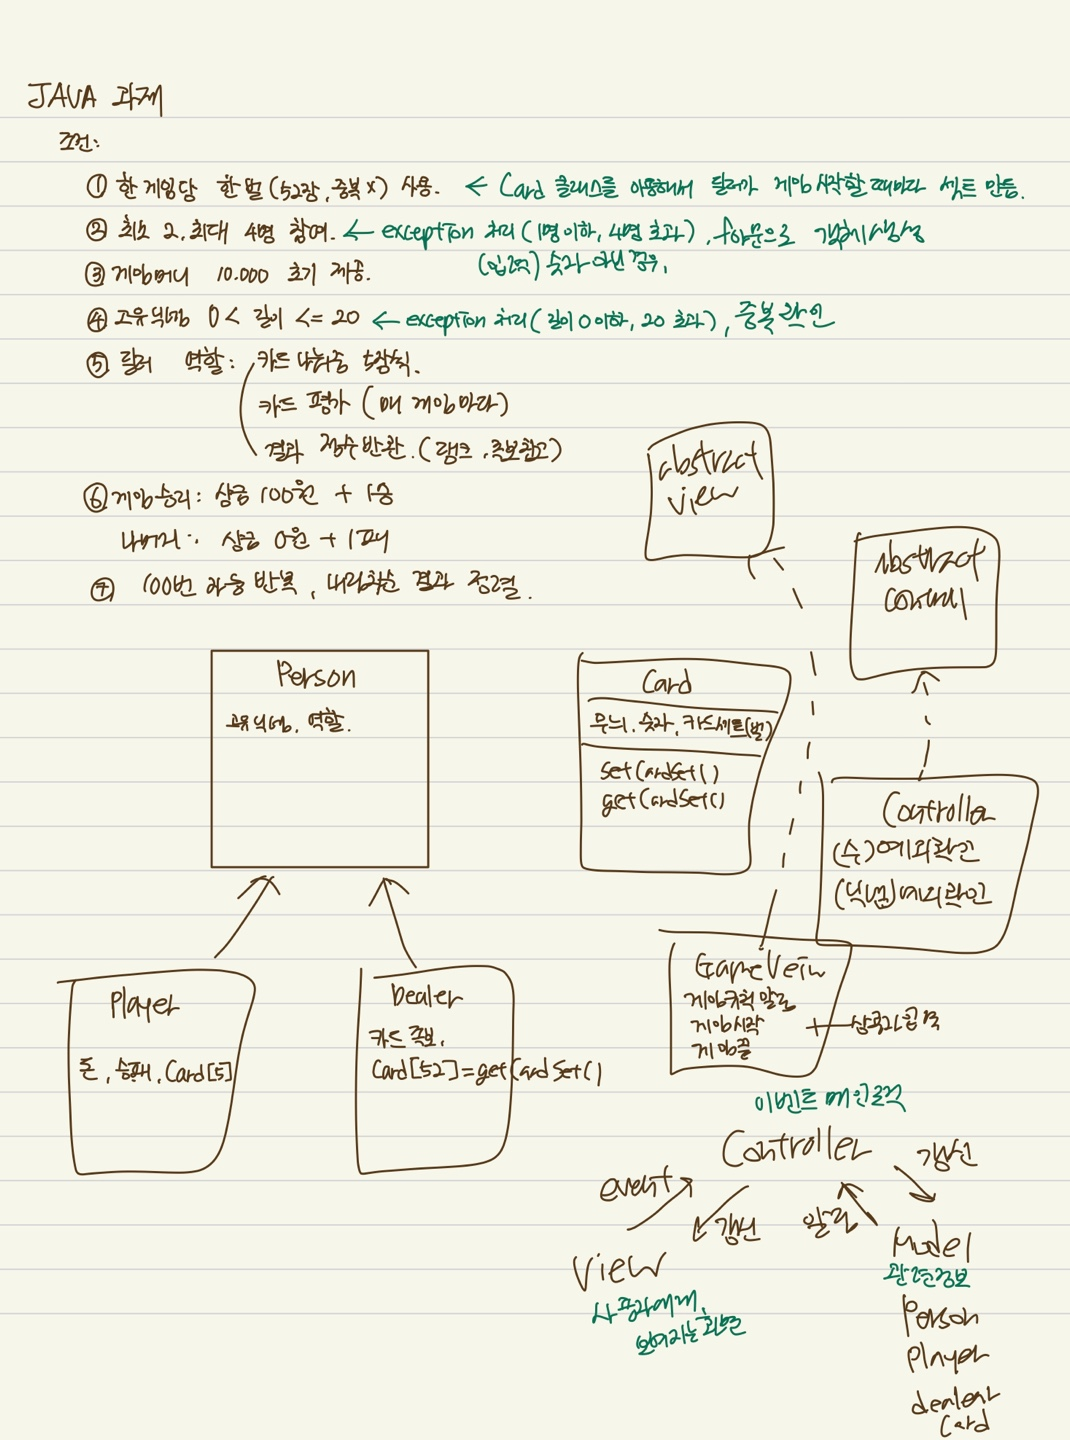 JAVA 과제
조건:
① 한 게임당 한 벌(52장, 중복 x) 사용. ← Card 클래스를 이용해서 딜러가 게임 시작할 때마다 셋트 만듦.
② 최소 2, 최대 4명 참여. ← exception 처리 (1명 이하, 4명 초과), for문으로 객체 생성
(입력) 숫자 아닌 경우,
③ 게임머니 10.000 초기 제공.
④ 고유 닉네임 0 < 길이 <= 20 ← exception 처리 (길이 0 이하, 20 초과), 중복 확인
⑤ 딜러 역할: 카드 나눠줌 5장씩.
카드 평가 (매 게임마다)
결과 점수 반환. (랭크, 족보참고)
⑥ 게임 승리: 상금 100원 + 1승
나머지: 상금 0원 + 1패
⑦ 100번 자동 반복, 내림차순 결과 정렬.
abstract
view
Abstract
Person
고유 닉네임, 역할.
Card
무늬, 숫자, 카드세트(벌)
setCardSet()
getCardSet()
Controller
(수) 예외확인
(닉넴) 예외확인
Player
돈, 승패, Card[5]
Dealer
카드 족보,
Card[52]=getCardSet()
GameVeiw
게임규칙 알림
게임시작
게임끝
이벤트 메인로직
Controller
event
갱신
갱신
알림
View
사용자에게,
보여지는 화면
Model
관련정보
Person
Player
dealear
Card